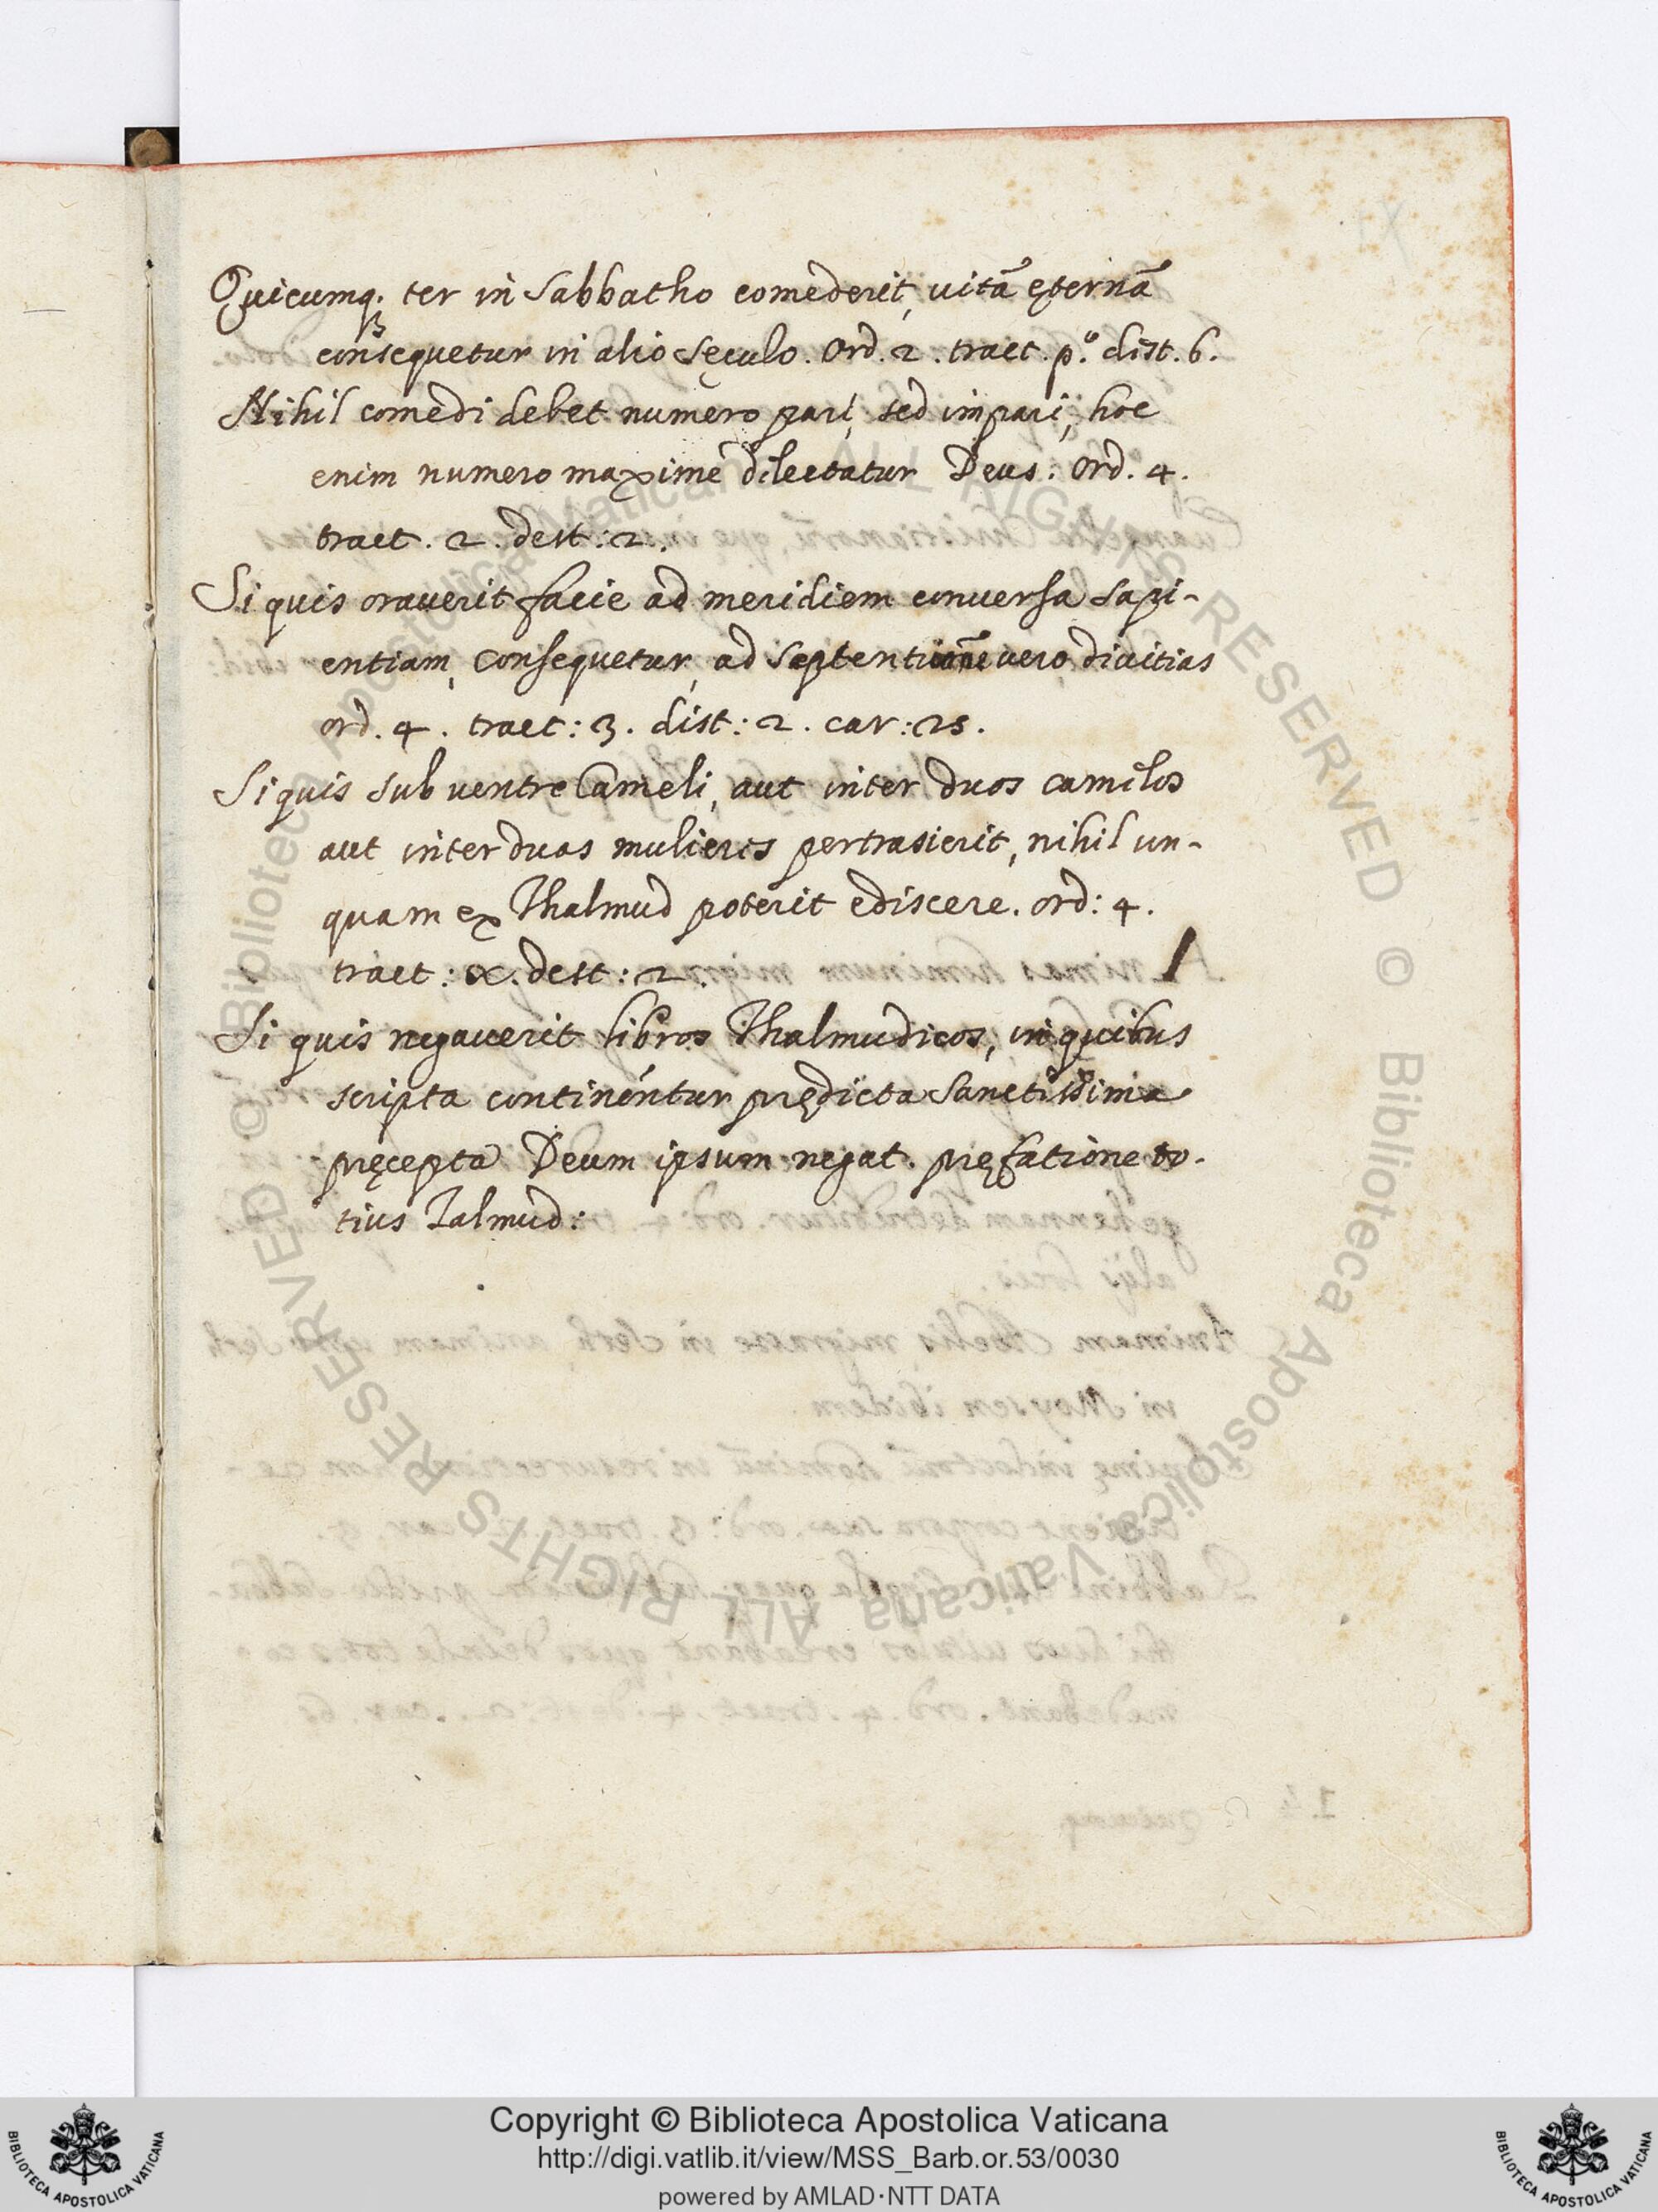 Quicumq. ter in Sabbatho comederit, uitā ęternā
consequetur in alio sęculo. Ord. 2. tract. p.º dist. 6.
Nihil comedi debet numero pari, sed impari, hoc
enim numero maxime dilectatur Deus. Ord. 4.
tract. 2. dest: 2.
Si quis orauerit facie ad meridiem conuersa sapi-
entiam, consequetur, ad septentrionē uero, diuitias
ord. 4. tract: 3. dist: 2. car: 25.
Si quis sub uentre Cameli, aut inter duos camelos
aut inter duas mulieres pertrasierit, nihil un-
quam ex Thalmud poterit ediscere. ord: 4.
tract: dest: 2.
Si quis negauerit libros Thalmudicos, in quibus
scripta continéntur prędicta Sanctissima
pręcepta Deum ipsum negat. pręfatione to-
tius Talmud:
Copyright © Biblioteca Apostolica Vaticana
http://digi.vatlib.it/view/MSS_Barb.or.53/0030
powered by AMLAD·NTT DATA
BIBLIOTECA APOSTOLICA VATICANA
BIBLIOTECA APOSTOLICA VATICANA
© Biblioteca Apostolica Vaticana ALL RIGHTS RESERVED © Biblioteca Apostolica Vaticana ALL RIGHTS RESERVED